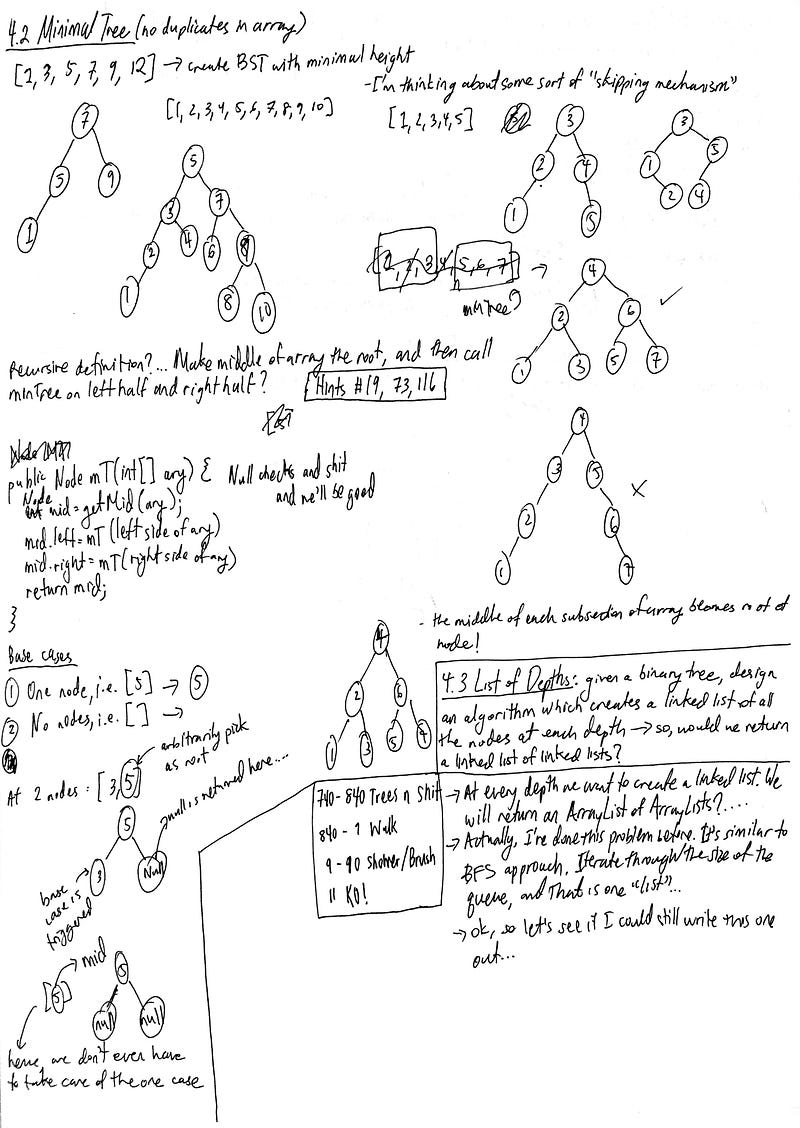 4.2 Minimal Tree (no duplicates in array)
[1, 3, 5, 7, 9, 12] → create BST with minimal height
- I'm thinking about some sort of "skipping mechanism"
[1, 2, 3, 4, 5, 6, 7, 8, 9, 10]
[1, 2, 3, 4, 5]
7
5 9
1
5
3 7
2 4 6 9
1 8 10
3
2 4
1 5
3
1 5
2 4
[1, 2, 3, 4, 5, 6, 7] →
minTree?
4
2 6 ✓
1 3 5 7
Recursive definition?... Make middle of array the root, and then call
minTree on left half and right half?
{Hints #19, 73, 116
4
3 5 ×
2 6
1 7
public Node mT(int[] ary) {
Null checks and shit
and we'll be good
Node
int mid = getMid(ary);
mid.left = mT(left side of ary)
mid.right = mT(right side of ary)
return mid;
}
- the middle of each subsection of array becomes root of
node!
4
2 6
1 3 5 7
Base cases
① One node, i.e. [5] → 5
② No nodes, i.e. [ ] →
arbitrarily pick
as root
At 2 nodes: [3, 5]
null is returned here....
5
3 Null
base
case is
triggered
→ mid
[5]
5
null null
hence, we don't even have
to take care of the one case
4.3 List of Depths: given a binary tree, design
an algorithm which creates a linked list of all
the nodes at each depth → so, would we return
a linked list of linked lists?
740-840 Trees n Shit
840-9 Walk
9-990 Shower/Brush
11 KO!
→ At every depth we want to create a linked list. We
will return an ArrayList of ArrayLists?....
→ Actually, I've done this problem before. It's similar to
BFS approach. Iterate through the size of the
queue, and that is one "list"...
→ ok, so let's see if I could still write this one
out...